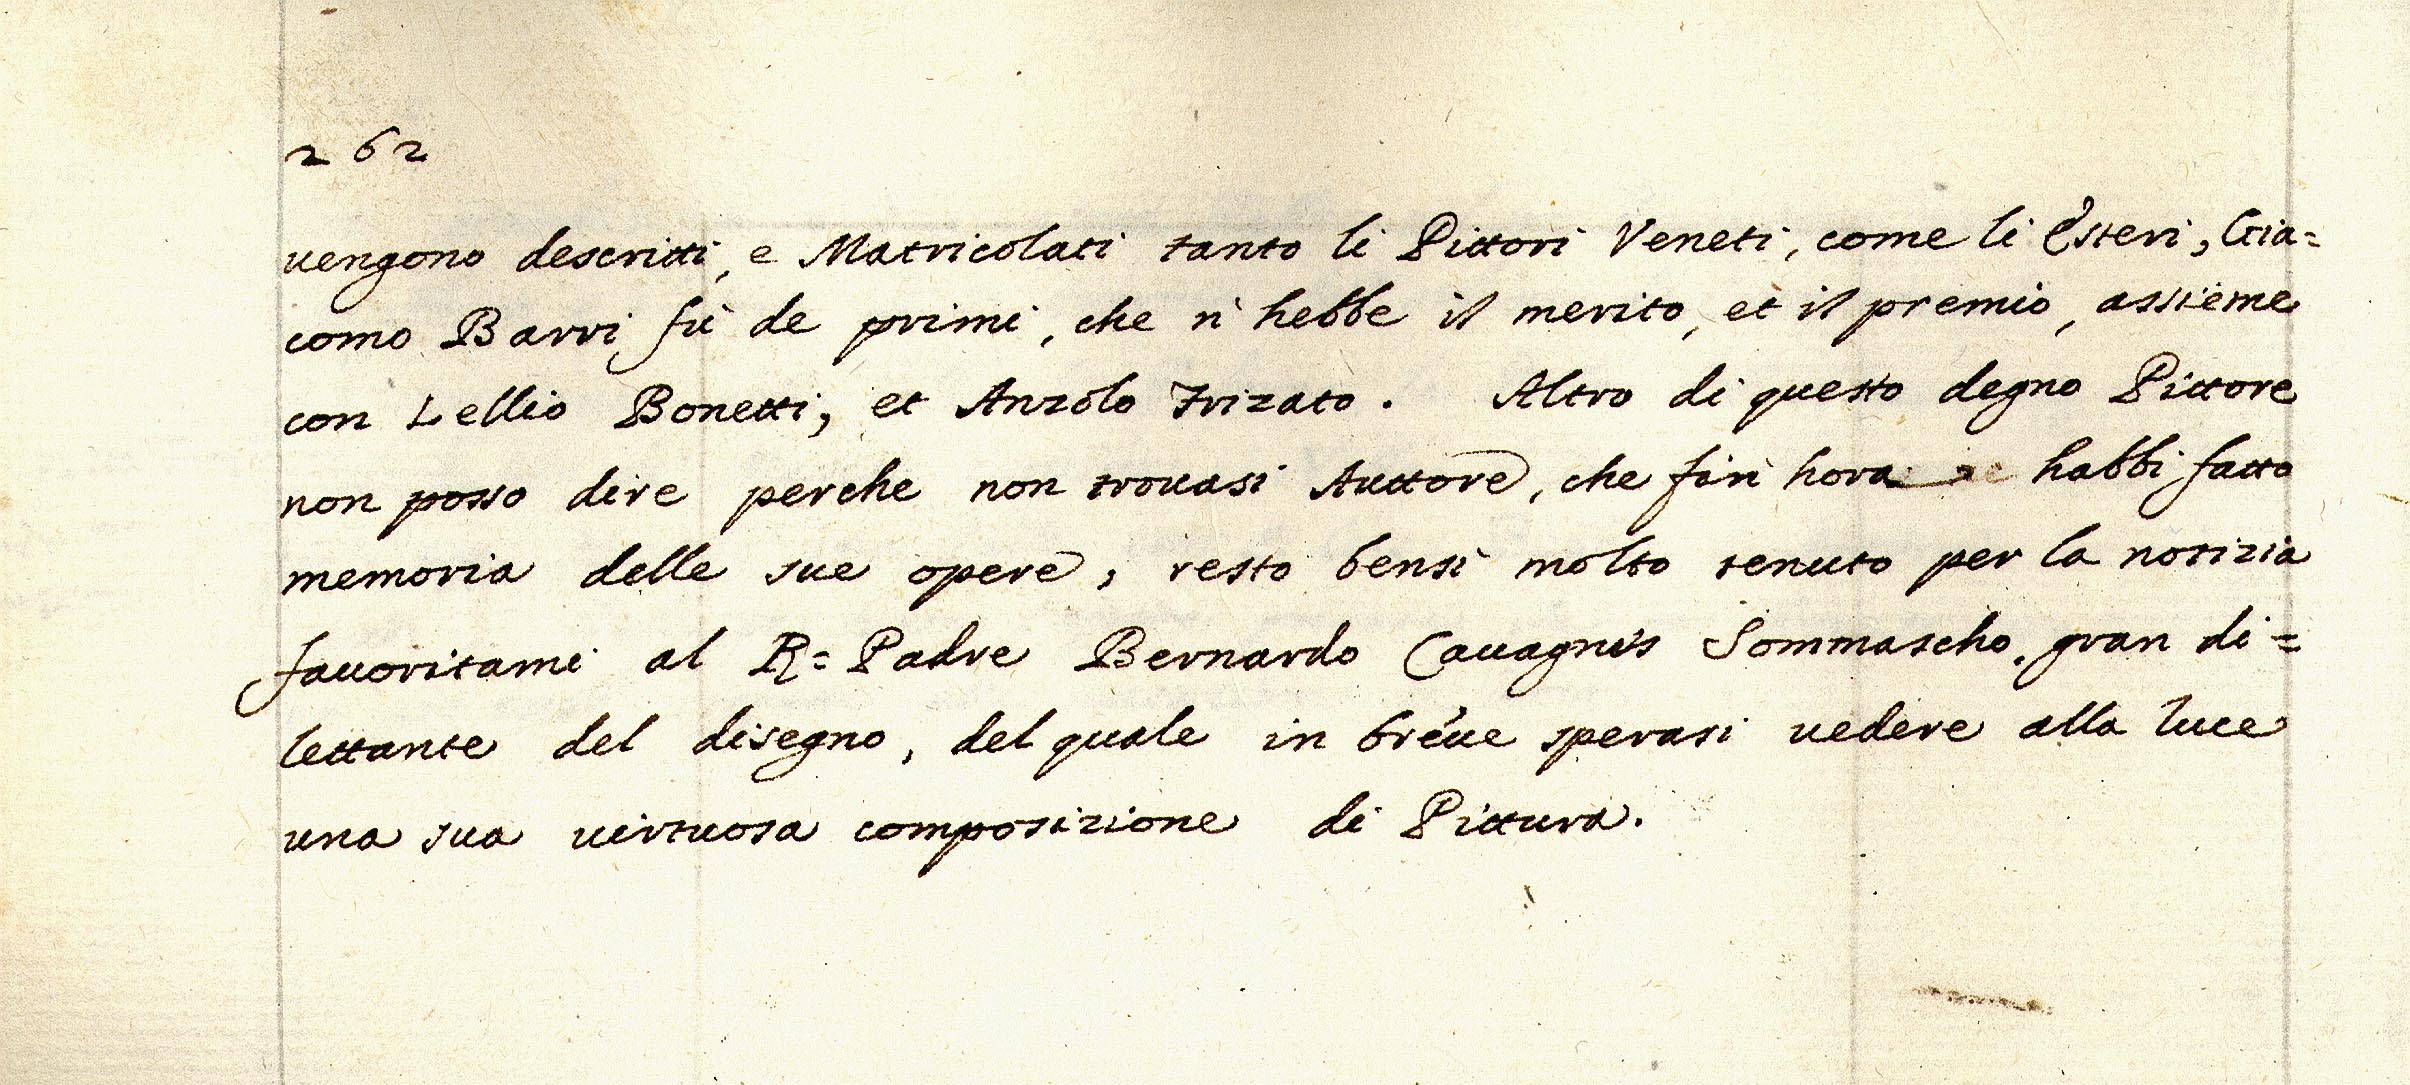 262
vengono descritti, e Matricolati tanto li Pittori Veneti, come li Esteri, Gia=
como Barri fù de primi, che n'hebbe il merito, et il premio, assieme
con Lellio Bonetti, et Anzolo Trizato. Altro di questo degno Pittore
non posso dire perche non trouasi Auttore, che fin hora habbi fatto
memoria delle sue opere, resto bensi molto tenuto per la notizia
fauoritami al R: Padre Bernardo Cauagnis Sommascho, gran di=
lettante del disegno, del quale in breue sperasi uedere alla luce
una sua uirtuosa composizione di Pittura.